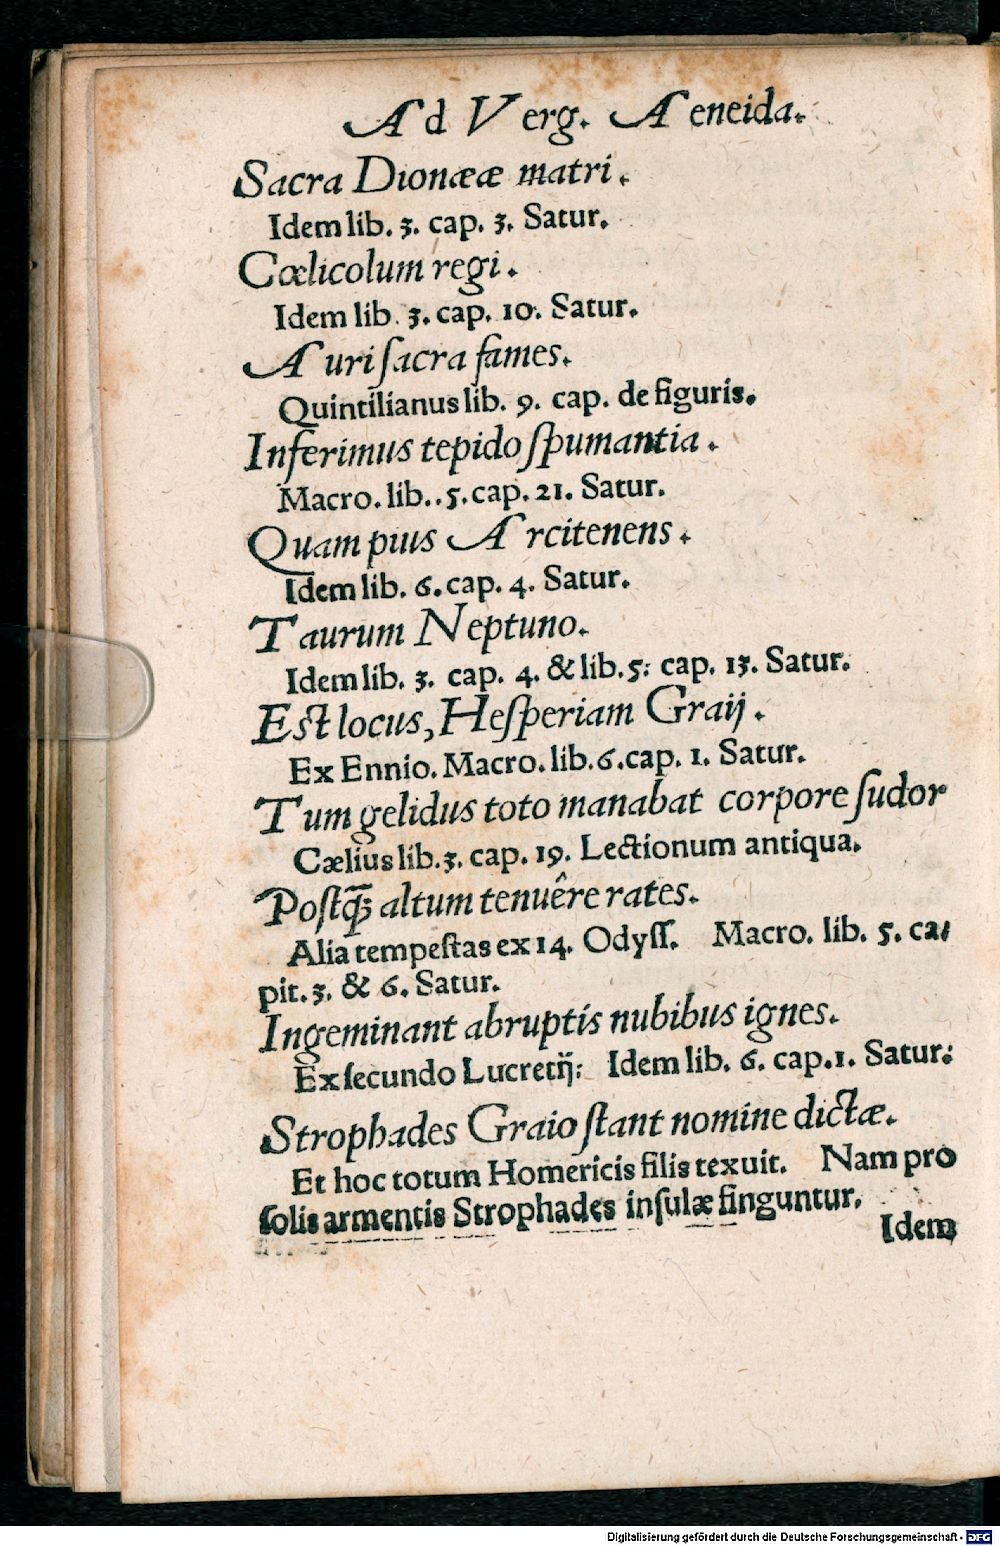 Ad Verg. Aeneida.
Sacra Dionææ matri.
Idem lib. 3. cap. 3. Satur.
Cœlicolum regi.
Idem lib. 3. cap. 10. Satur.
Auri ſacra fames.
Quintilianus lib. 9. cap. de figuris.
Inferimus tepido ſpumantia.
Macro. lib.. 5. cap. 21. Satur.
Quam pius Arcitenens.
Idem lib. 6. cap. 4. Satur.
Taurum Neptuno.
Idem lib. 3. cap. 4. & lib. 5: cap. 13. Satur.
Eſt locus, Heſperiam Graij.
Ex Ennio. Macro. lib. 6. cap. 1. Satur.
Tum gelidus toto manabat corpore ſudor
Cælius lib. 3. cap. 19. Lectionum antiqua.
Poſtq̃ꝫ altum tenuêre rates.
Alia tempeſtas ex 14. Odyſſ. Macro. lib. 5. ca-
pit. 3. & 6. Satur.
Ingeminant abruptis nubibus ignes.
Ex ſecundo Lucretij: Idem lib. 6. cap. 1. Satur:
Strophades Graio ſtant nomine dictæ.
Et hoc totum Homericis filis texuit. Nam pro
ſolis armentis Strophades inſulæ finguntur.
Idem
Digitalisierung gefördert durch die Deutsche Forschungsgemeinschaft - DFG